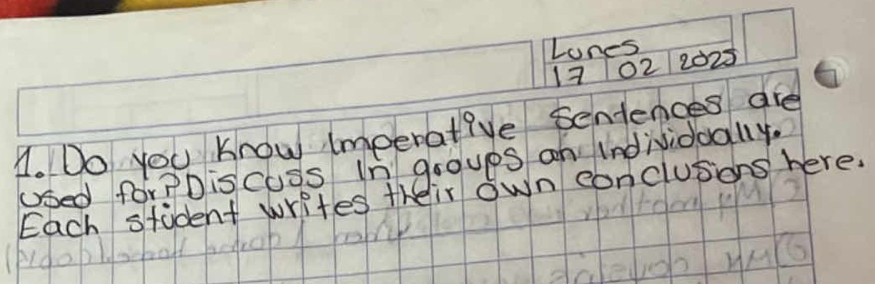 Lunes
17 02 2025
1. Do you know imperative sentences are
used for? Discuss in groups an individually.
Each student writes their own conclusions here.